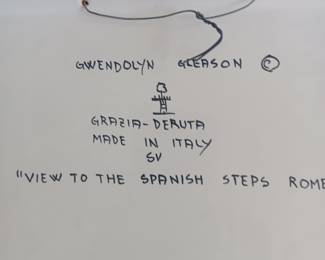 GWENDOLYN GLEASON ©
GRAZIA-DERUTA
MADE IN ITALY
SV
"VIEW TO THE SPANISH STEPS ROME